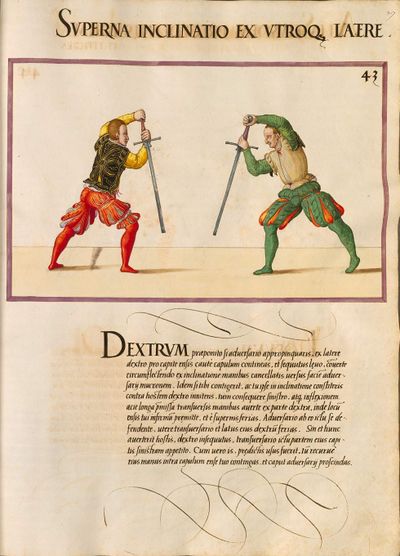 SVPERNA INCLINATIO EX VTROQ, LATERE.
43
DEXTRVM præponito si adversario appropinquaris, ex latere
dextro pro capite ensis caute capulum contineas, et sequutus levo, converte
circumflectendo ex inclinatione manibus cancellatis versus faciẽ adver-
sarÿ mucronem. Idem si tibi contigerit, ac tu ipse in inclinatione constiteris
contra hostem dextro innitens, tum consequere sinistro, atq, inflexionem
acie longa ꝓmissa transversis manibus averte ex parte dextra, inde locũ
ensis tui infirmũ permitte, et è supernis ferias. Adversario ab eo ictu se de-
fendente, utere transversario et latus eius dextrũ ferias. Sin et hunc
averterit hostis, dextro insequutus, transversario ictu partem eius capi-
tis sinistram appetito. Cum vero is prædictis usus fuerit, tu recurvæ
eius manus intra capulum ense tuo contineas, et caput adversarÿ proscindas.